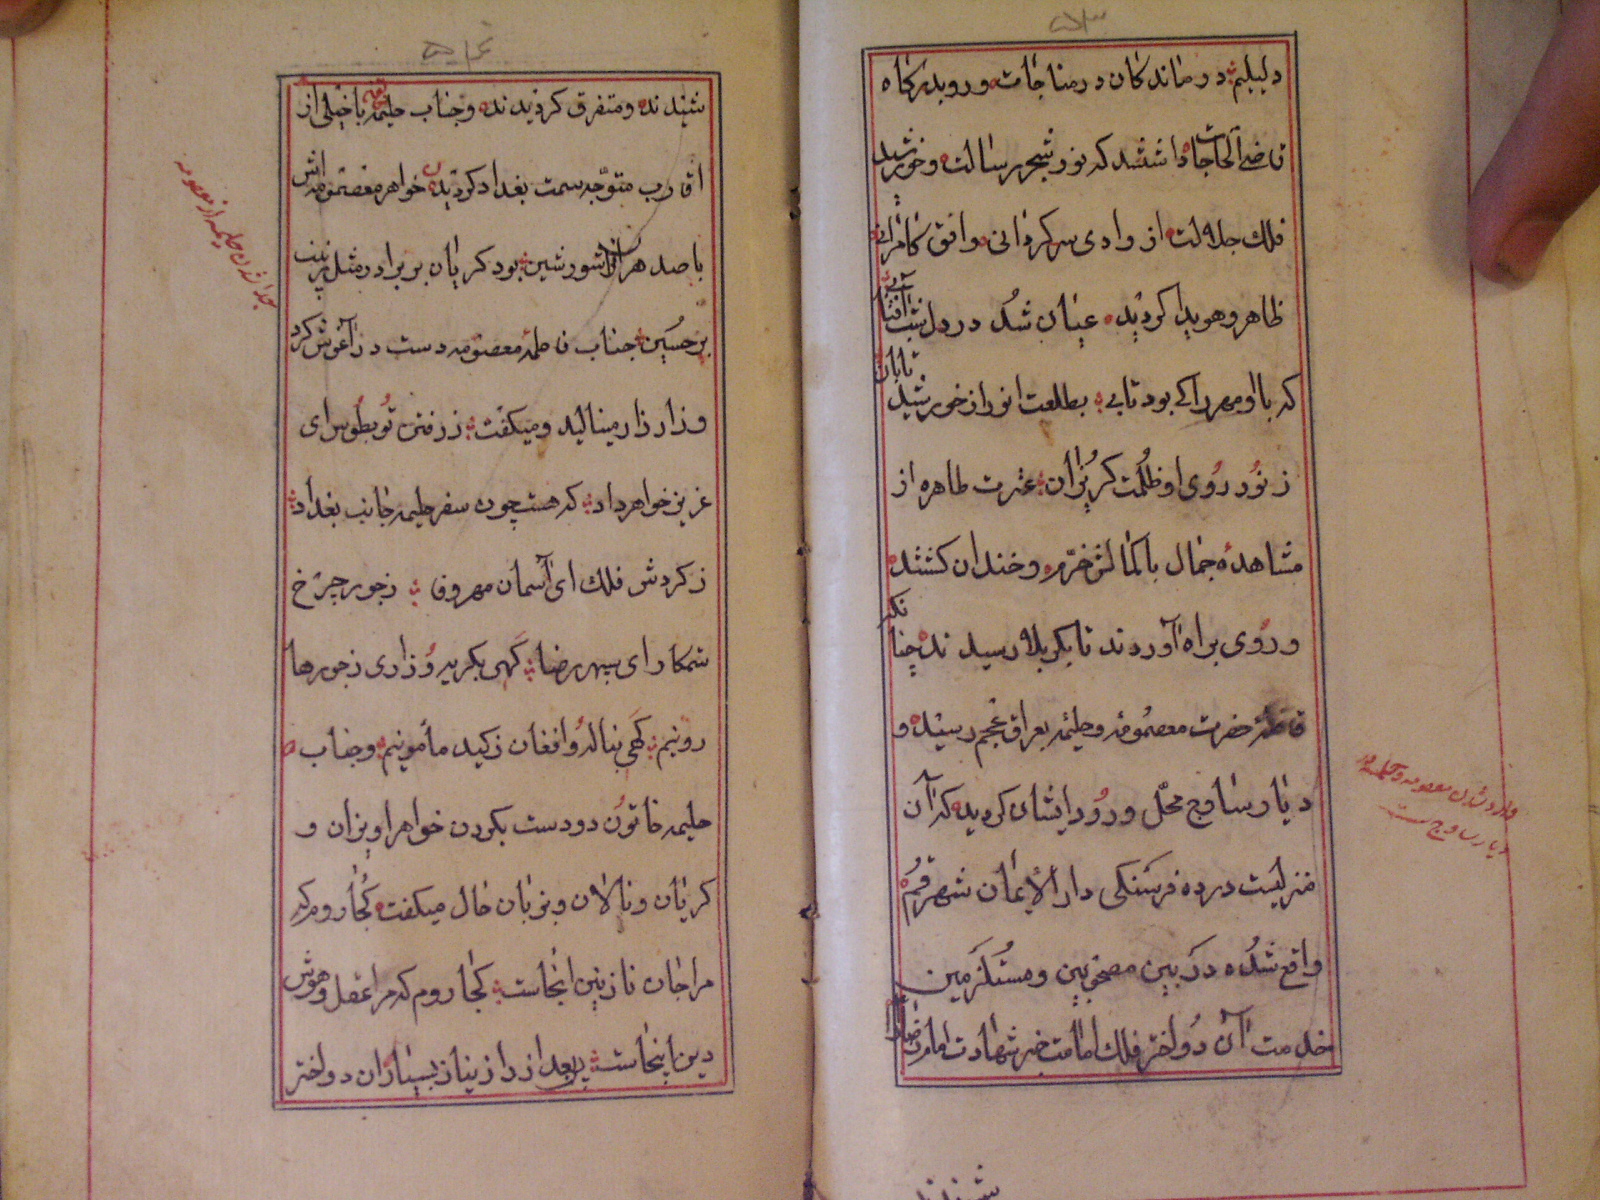 دلیلیم درماندکان در مناجات و رو بدرکاه
قاضی الحاجات داشتند که نور شجر رسالت و خورشید
فلك جلالت از وادی سرکردانی و افق کامرانی
ظاهر و هویدا کردید عیان شد در دل شب آفتاب تابان
که با او مهر را کی بود تابی بطلعت انور از خورشید
ز نور روی او ظلمت کریزان عترت طاهره از
مشاهدهٔ جمال با کمالش خرم و خندان کشتند
و روی براه آوردند تا بکربلا رسیدند چنانکه
فاطمهٔ حضرت معصومه و حلیمه بعراق عجم رسیده و
دیار ساوج محل ورود ایشان کردید که آن
منزلیست در ده فرسنکی دار الأیمان شهر قم
واقع شده در بین مصحبین و مستکزمین
خدمت آن دو اختر فلك امامت خبر شهادت امام رضا را
وارد شدن معصومه و حلیمه در
دیار ساوج است
شنیدند
شنیدند و متفرق کردیدند و جناب حلیمه با خیلی از
اقارب متوجه سمت بغداد کردید خواهر معصومه اش
با صد هزاران شور شین بود کریان بر برادر مثل زینب
بر حسین جناب فاطمهٔ معصومه دست در آغوش کرد
و زار زار مینالید و میکفت ز رفتن تو بطوس ای
عزیز خواهر داد که هست چون سفر حلیمه جانب بغداد
ز کردش فلك ای آسمان مهر وفا ز جور چرخ
ستمکار ای سپهر رضا کهی بکریه و زاری ز جورها
رونیم کهی بناله و افغان ز کید مأمونیم و جناب
حلیمه خاتون دو دست بکردن خواهر اویزان و
کریان و نالان و بزبان حال میکفت کجا روم که
مرا جان نازنین اینجاست کجا روم که مرا عقل و هوش
دین اینجاست بعد از راز نیاز بسیار ان دو اختر
جدا شدن حلیمه از معصومه